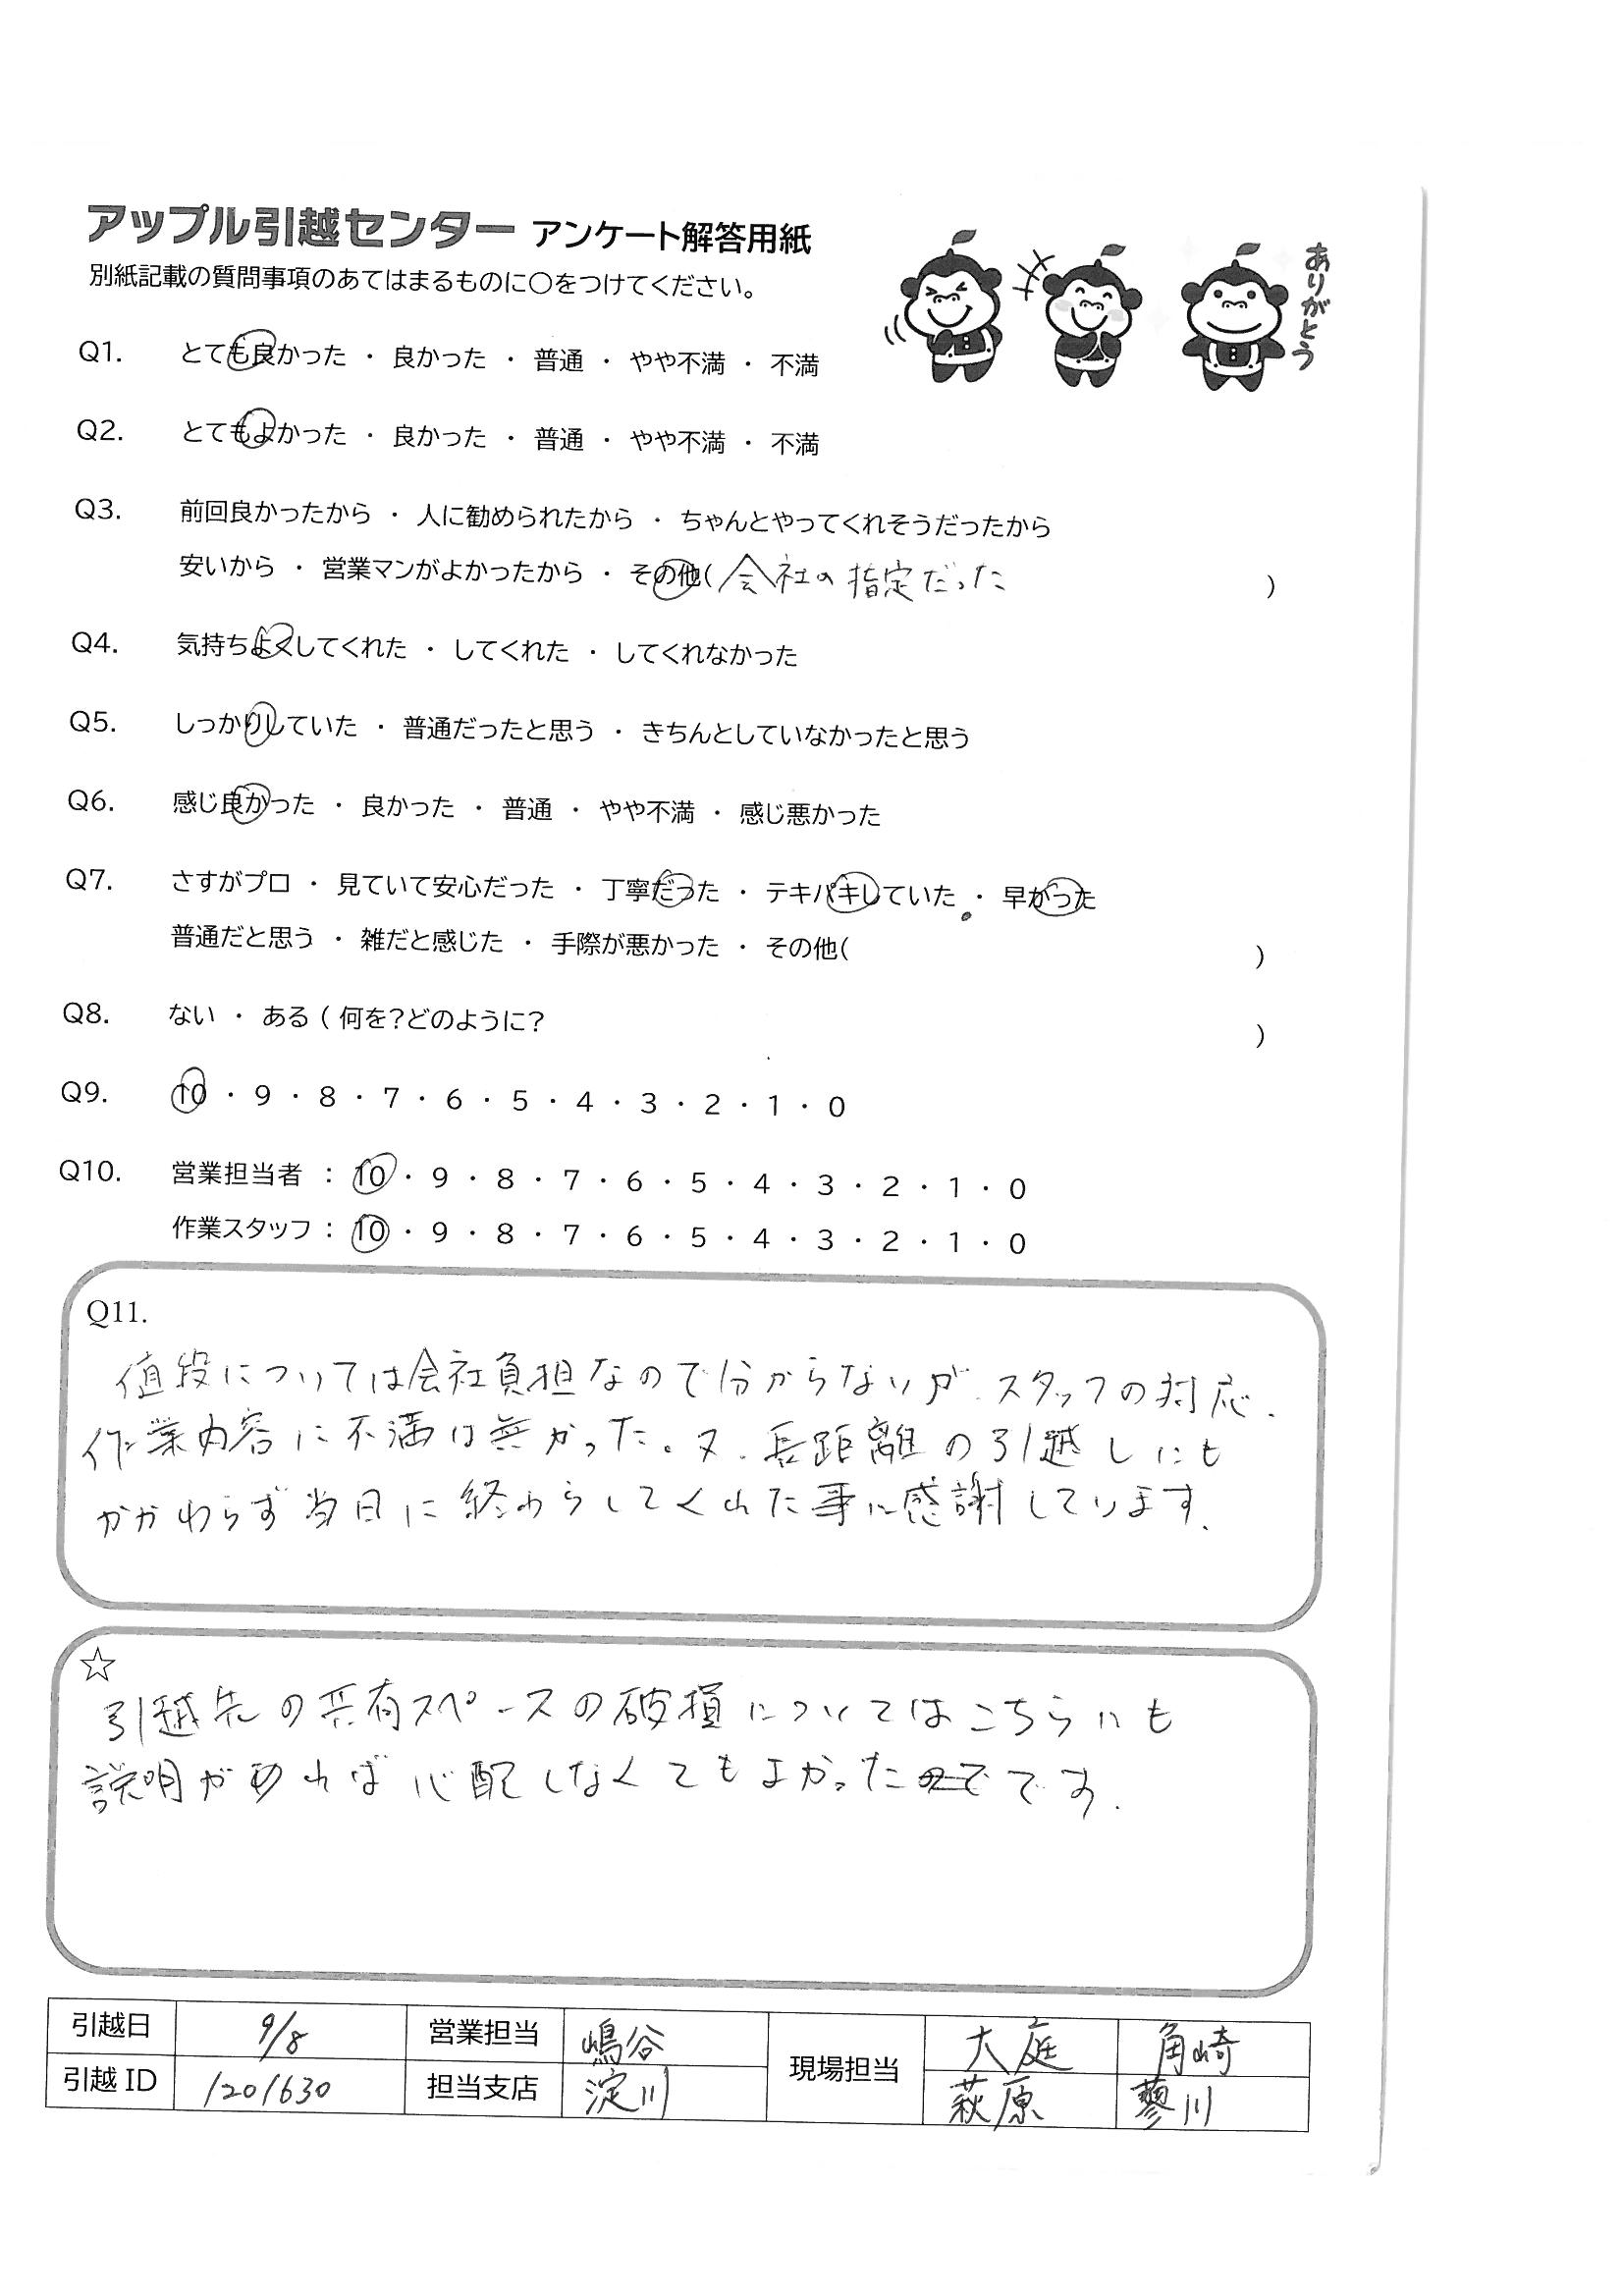 アップル引越センター アンケート解答用紙
別紙記載の質問事項のあてはまるものに○をつけてください。
ありがとう
Q1. とても良かった ・ 良かった ・ 普通 ・ やや不満 ・ 不満
Q2. とてもよかった ・ 良かった ・ 普通 ・ やや不満 ・ 不満
Q3. 前回良かったから ・ 人に勧められたから ・ ちゃんとやってくれそうだったから
安いから ・ 営業マンがよかったから ・ その他( 会社の指定だった )
Q4. 気持ちよくしてくれた ・ してくれた ・ してくれなかった
Q5. しっかりしていた ・ 普通だったと思う ・ きちんとしていなかったと思う
Q6. 感じ良かった ・ 良かった ・ 普通 ・ やや不満 ・ 感じ悪かった
Q7. さすがプロ ・ 見ていて安心だった ・ 丁寧だった ・ テキパキしていた ・ 早かった
普通だと思う ・ 雑だと感じた ・ 手際が悪かった ・ その他( )
Q8. ない ・ ある ( 何を?どのように? )
Q9. 10 ・ 9 ・ 8 ・ 7 ・ 6 ・ 5 ・ 4 ・ 3 ・ 2 ・ 1 ・ 0
Q10. 営業担当者 : 10 ・ 9 ・ 8 ・ 7 ・ 6 ・ 5 ・ 4 ・ 3 ・ 2 ・ 1 ・ 0
作業スタッフ : 10 ・ 9 ・ 8 ・ 7 ・ 6 ・ 5 ・ 4 ・ 3 ・ 2 ・ 1 ・ 0
Q11.
値段については会社負担なので分からないが、スタッフの対応、
作業内容に不満は無かった。又、長距離の引越しにも
かかわらず当日に終わらしてくれた事に感謝しています。
☆
引越先の共有スペースの破損についてはこちらにも
説明があれば心配しなくてもよかったです。
引越日 9/8 営業担当 嶋谷 現場担当 大庭 角崎
引越ID 1201630 担当支店 淀川 萩原 蓼川